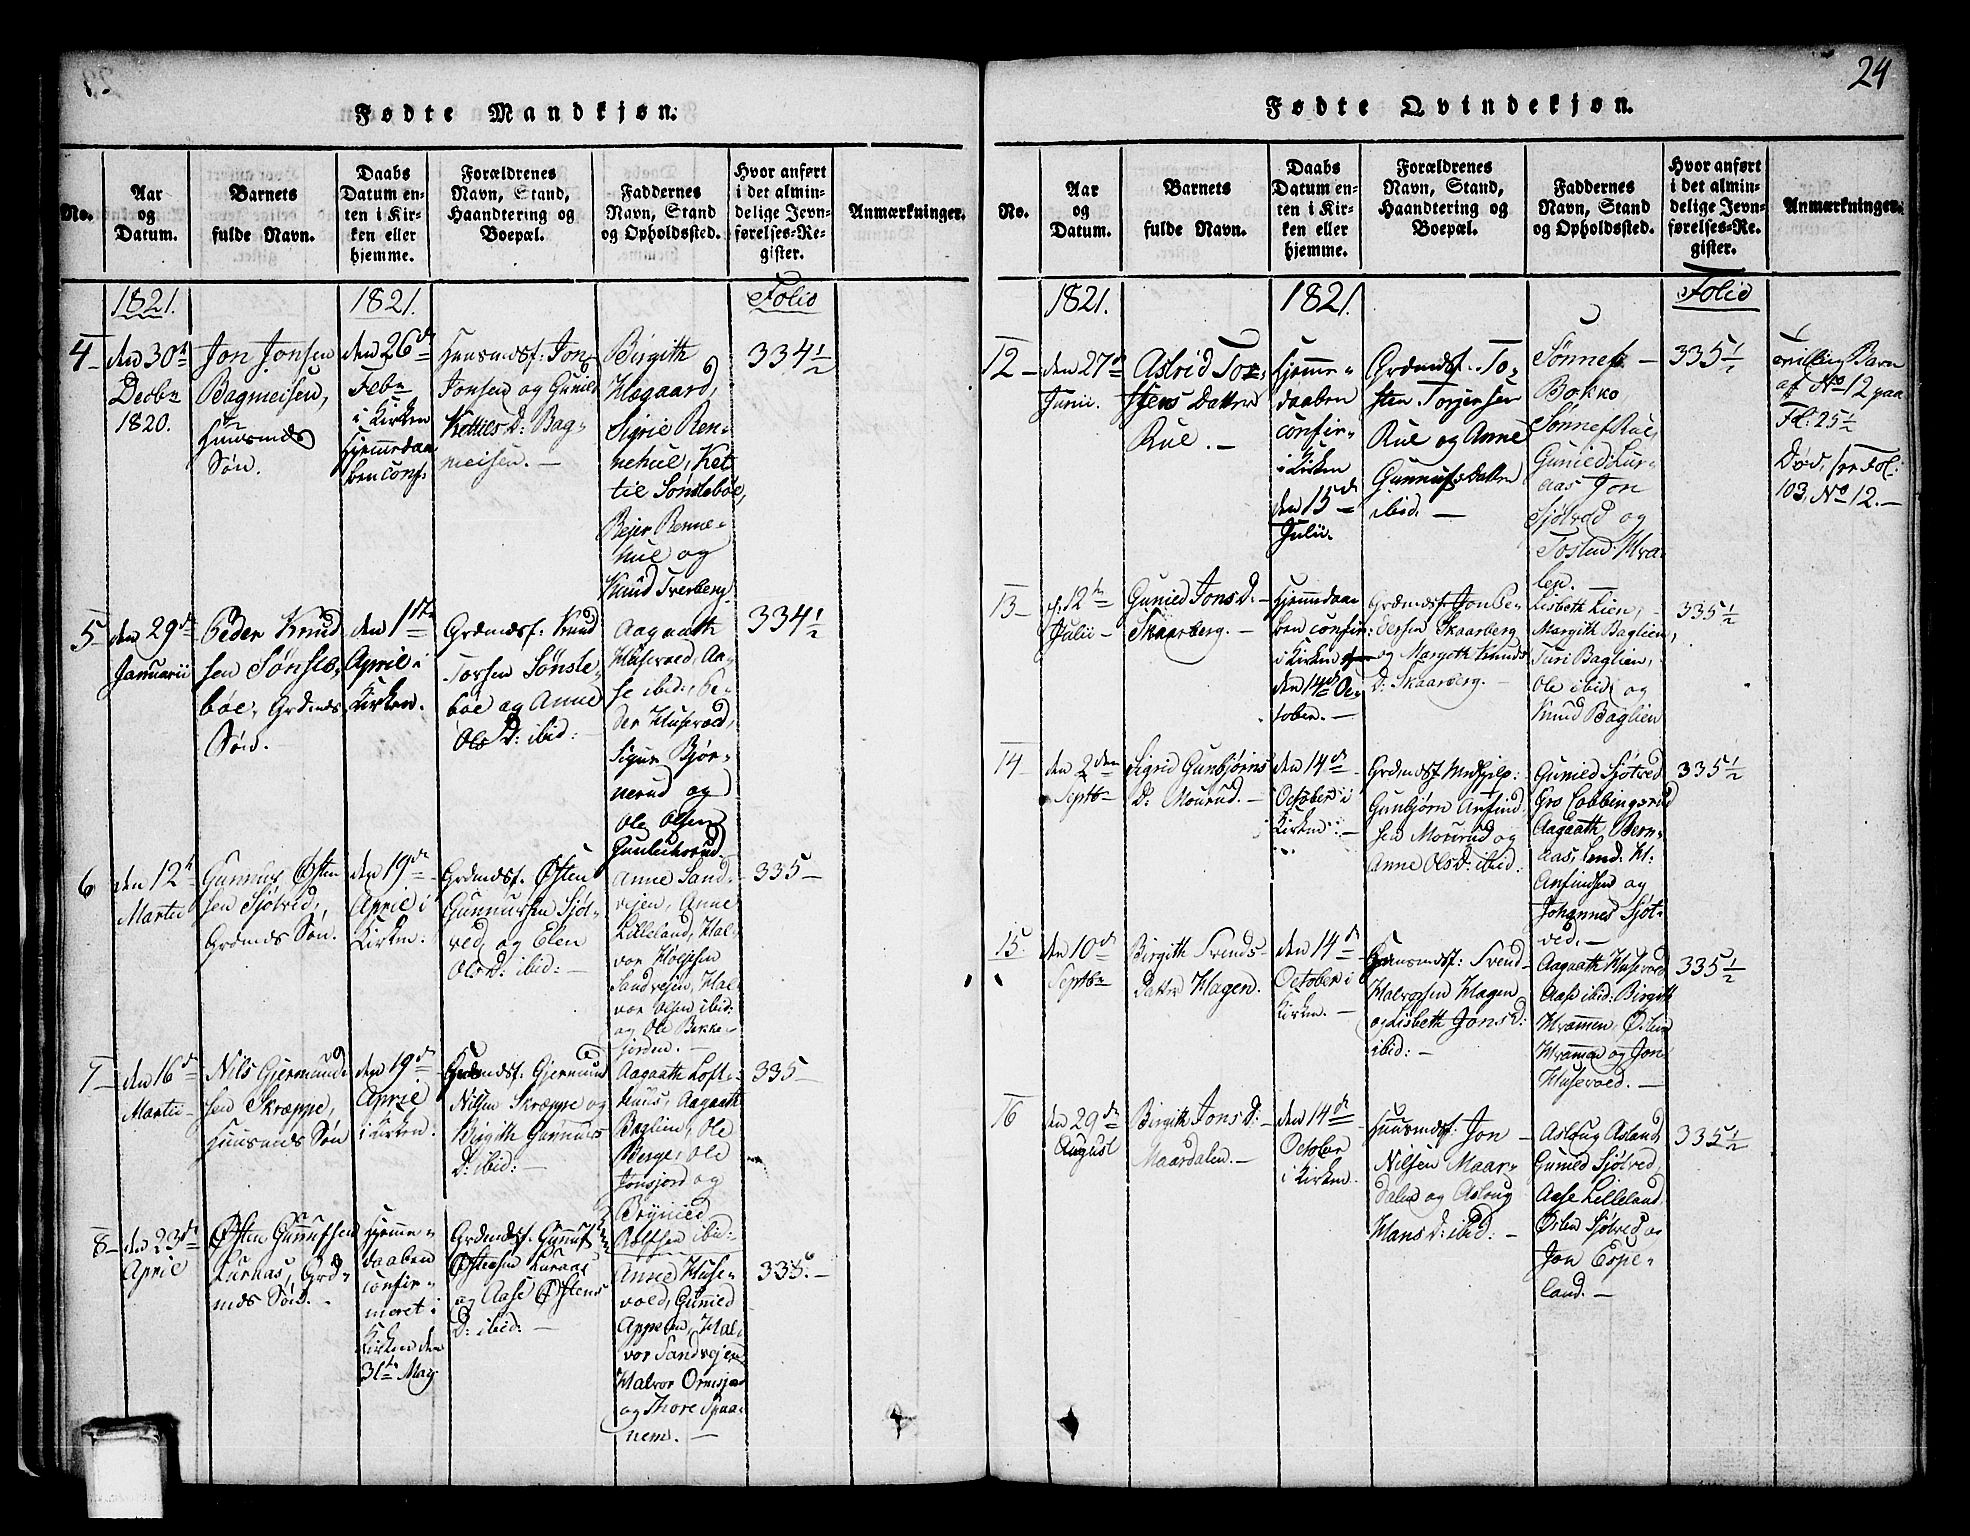 24
Fødte Mandkjøn.
No.
Aar
og
Datum.
Barnets
fulde Navn.
Daabs
Datum en-
ten i Kir-
ken eller
hjemme.
Forældrenes
Navn, Stand,
Haandtering og
Boepæl.
Faddernes
Navn, Stand
og Opholdssted.
Hvor anført
i det almin-
delige Jevn-
førelses-Re-
gister.
Anmærkninger.
1821.
1821.
Folio
4
den 30te
Decbr
1820.
Jon Jonsen
Bagmeisen,
Huusmds
Søn.
den 26de
Febr
i Kirken
Hjemmedaa
ben conf.
Huusmdsf: Jon
Jonsen og Gunild
Kettils D: Bag-
meisen. —
Birgith
Høgaard,
Sigrie Ren-
nehue, Ket
til Sønslebøe,
Bejer Renne-
hue og
Knud Tverberg.
334½
5
den 29de
Januarii
Peder Knud
sen Sønsle-
bøe, Grdmds
Søn. —
den 1ste
April i
Kirken.
Grdmdsf: Knud
Torsen Sønsle-
bøe og Anne
Ols D: ibid: —
Aagaath
Husevold, Aa-
se ibid:, Pe-
der Husevold,
Sigur Bjør-
nerud og
Ole Olsen
334½
6
den 12te
Martii
Gunnuf Østen
sen Sjøtved,
Grdmds Søn.
den 19de
April i
Kirken:
Grdmdsf. Østen
Gunnufsen Sjøt-
ved, og Elen
Olsd: ibid: —
Anne Sand-
vejen, Anne
Lilleland, Hal-
vor Hølyesen
Sandvejen, Hal-
vor Olsen ibid:
og Ole Bekke-
jorden. —
335 —
7
den 16de
Martii
Nils Gjermund
sen Skræppe,
Huusmds Søn
den 19de
April
i Kirken.
Huusmdsf. Gjermund
Nilsen Skræppe og
Birgith Gunnufs
D: ibid: —
Aagaath Loft-
huus, Aagaath
Baglien, Ole
Berge, Ole
Jonsjord og
Brynild
ibid:
335 —
8
den 23de
April
Østen Gunnufsen
Luraas, Grd-
mds Søn. —
Hjemme-
daaben
confir-
meret i
Kirken den
31te May
Grdmdsf. Gunnuf
Østensen Luraas
og Aase Østens
D: ibid: —
Anne Huse-
vold, Gunild
Appelen, Hal-
vor Sandvejen
Halvor Ormsjor
og Thore Spaa-
nem. —
335. —
Fødte Qvindekjøn.
No.
Aar
og
Datum.
Barnets
fulde Navn.
Daabs
Datum en-
ten i Kir-
ken eller
hjemme.
Forældrenes
Navn, Stand,
Haandtering og
Boepæl.
Faddernes
Navn, Stand
og Opholdssted.
Hvor anført
i det almin-
delige Jevn-
førelses-Re-
gister.
Anmærkninger.
1821.
1821.
Folio
12
den 27de
Junii.
Astrid Tor-
stens Datter
Rue. —
Hjemme-
daaben
confir-
i Kirken
den 15de
Julii.
Grdmdsf. To-
sten Torjersen
Rue og Anne
Gunnufs Datter
ibid. —
Sønnef
Bokko,
Sønnef Rue,
Gunild Lur-
aas Jon
Sjøtved og
Tosten Hva-
len. —
335½
Tvilling Barn
af No 12 paa
Fl: 25½
Død, see Fol:
103, No 12. —
13
d: 12te
Julii
Gunild Jons D: —
Skaarberg. —
Hjemmedaa
ben confir:
i Kirken
den 14de Oc-
tober. —
Grdmdsf: Jon Pe-
dersen Skaarberg
og Margith Knuds
D: Skaarberg. —
Lisbeth Lien,
Margith Baglien,
Turi Baglien,
Ole ibid og
Knud Baglien
335½
14
den 2den
Septbr
Sigrid Gunbjørns
D: Mourud. —
den 14de
October i
Kirken: —
Grdmdsf Medhjelp:
Gunbjørn Anfind
sen Mourud og
Anne Ols D: ibid:
Gunild Sjøtved
Gro Cobbingsrud
Aagaath Bern-
aas, Lend: H:
Anfindsen og
Johannes Sjøt-
ved. —
335½
15
den 10de
Septbr
Birgith Svends-
Datter Hagen.
den 14de
October i
Kirken. —
Huusmdsf: Svend
Halvorsen Hagen
og Lisbeth Jons D:
ibid: —
Aagaath Husevold
Aase ibid: Birgith
Hvammen, Østen
Hvammen og Jon
Husevold. —
335½
16
den 29de
August
Birgith Jons D:
Maardalen. —
den 14de
October
i Kirken.
Huusmdsf: Jon
Nilsen Maar-
dalen og Asloug
Hans D: ibid: —
Asloug Asland
Gunild Sjøtved,
Aase Lilleland
Østen Sjøtved og
Jon Espe-
land. —
335½